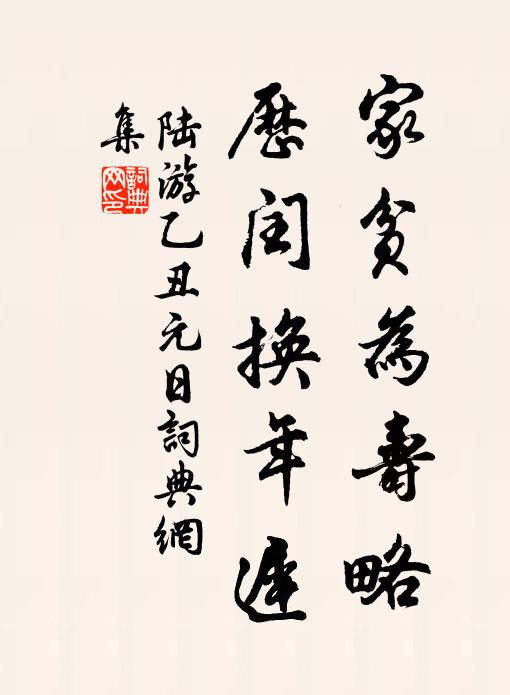 家貧為壽略
歷閏換年遲
陸游乙丑元日詞典網
集
詞典
网印